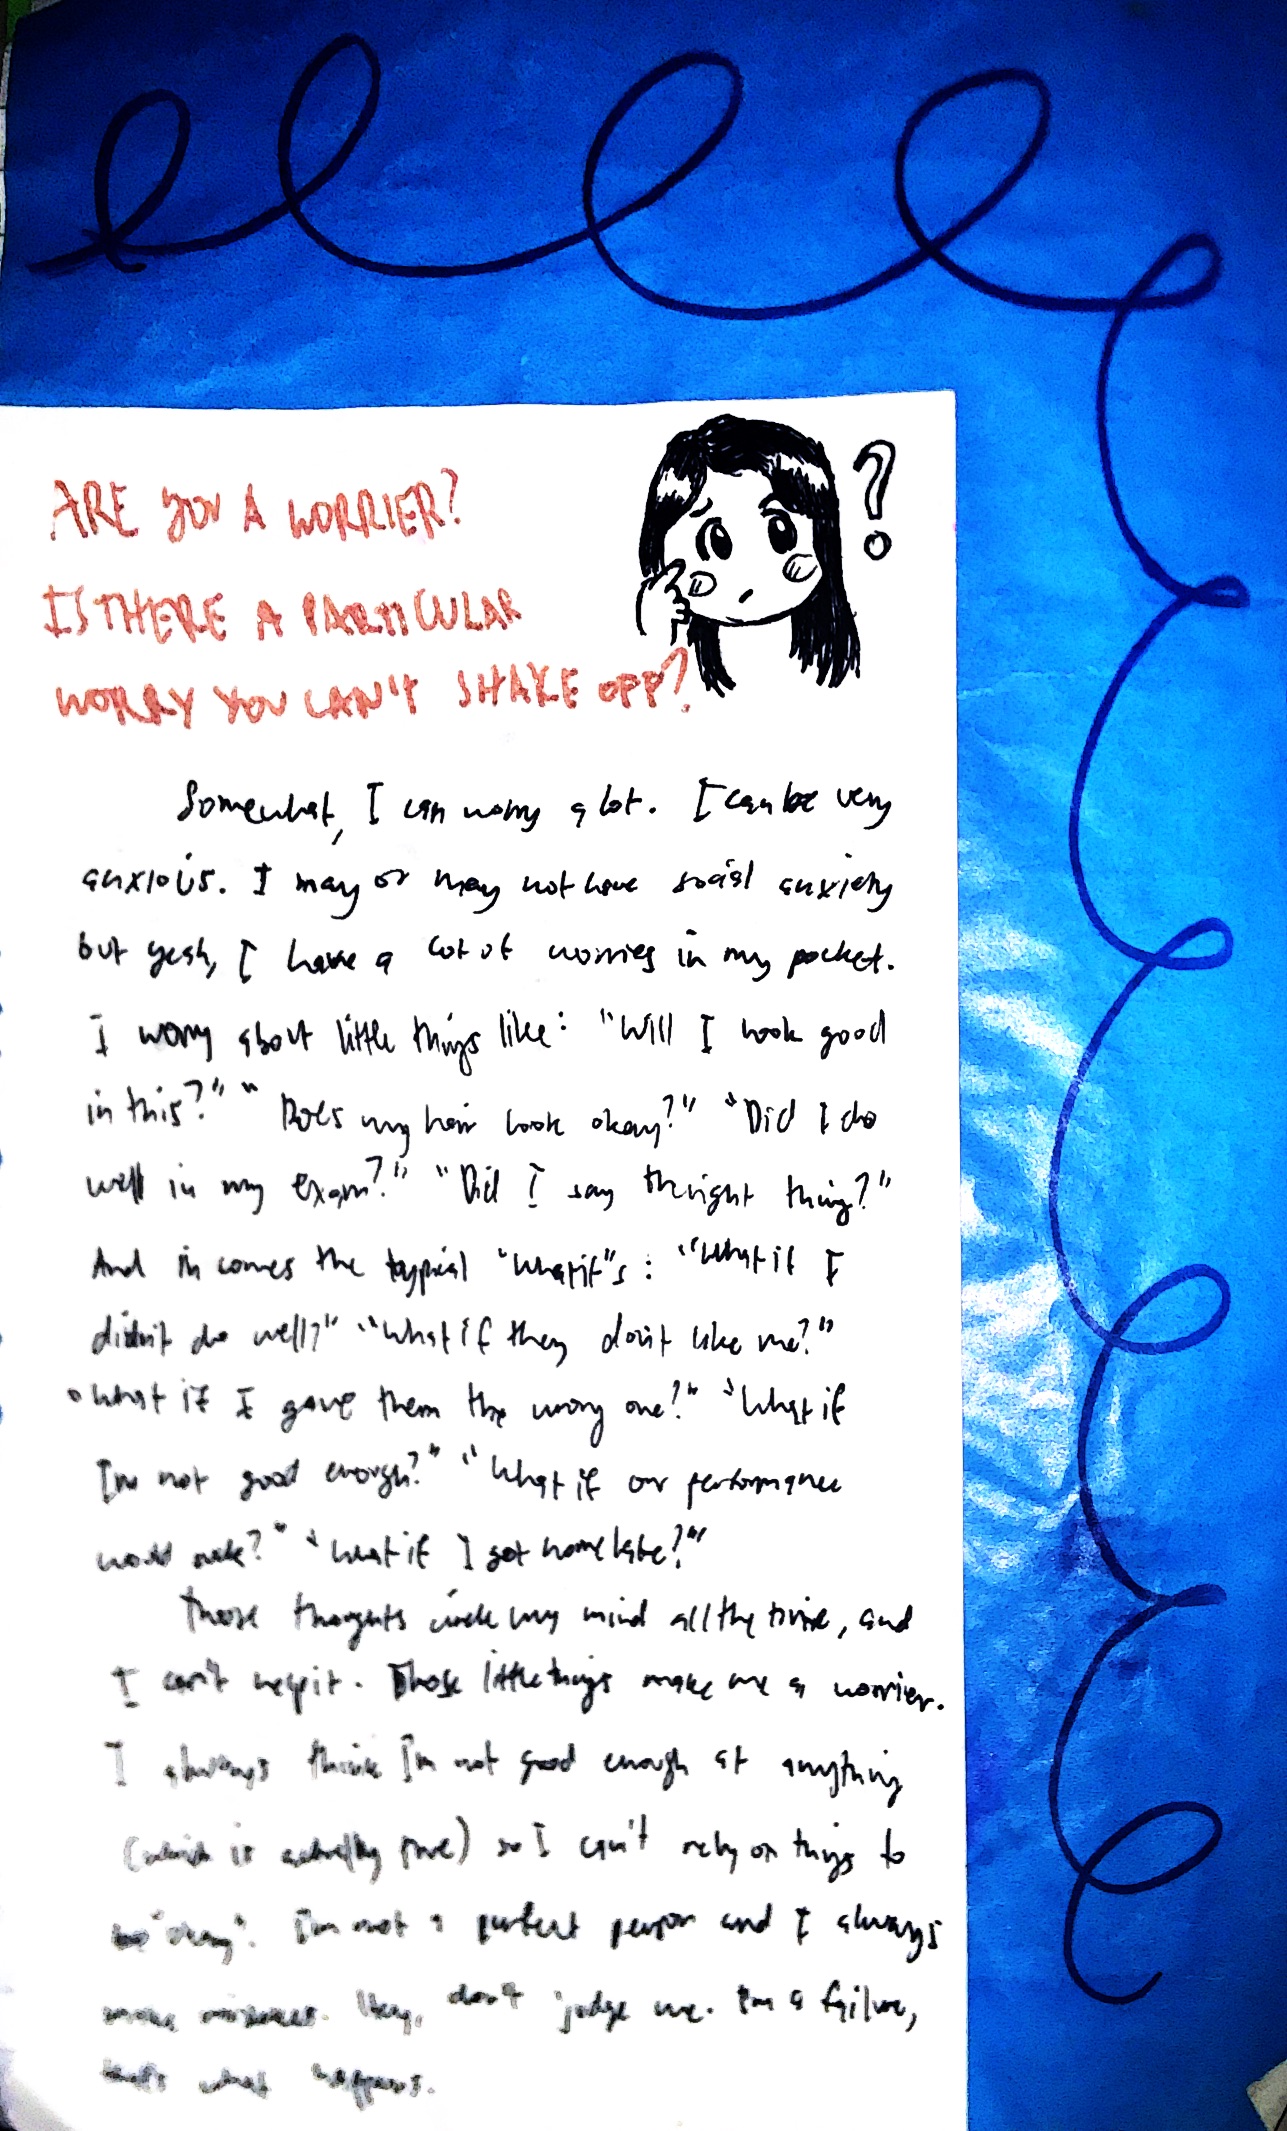 ARE YOU A WORRIER?
IS THERE A PARTICULAR
WORRY YOU CAN'T SHAKE OFF?
?
Somewhat, I can worry a lot. I can be very
anxious. I may or may not have social anxiety
but yeah, I have a lot of worries in my pocket.
I worry about little things like: "Will I look good
in this?" "Does my hair look okay?" "Did I do
well in my exam?" "Did I say the right thing?"
And in comes the typical "What if"s: "What if I
didn't do well?" "What if they don't like me?"
"What if I gave them the wrong one?" "What if
I'm not good enough?" "What if our performance
would suck?" "What if I got home late?"
Those thoughts circle my mind all the time, and
I can't help it. Those little things make me a worrier.
I always think I'm not good enough at anything
(which is actually true) so I can't rely on things to
be "okay". I'm not a perfect person and I always
make mistakes. Hey, don't judge me. I'm a failure,
that's what happens.